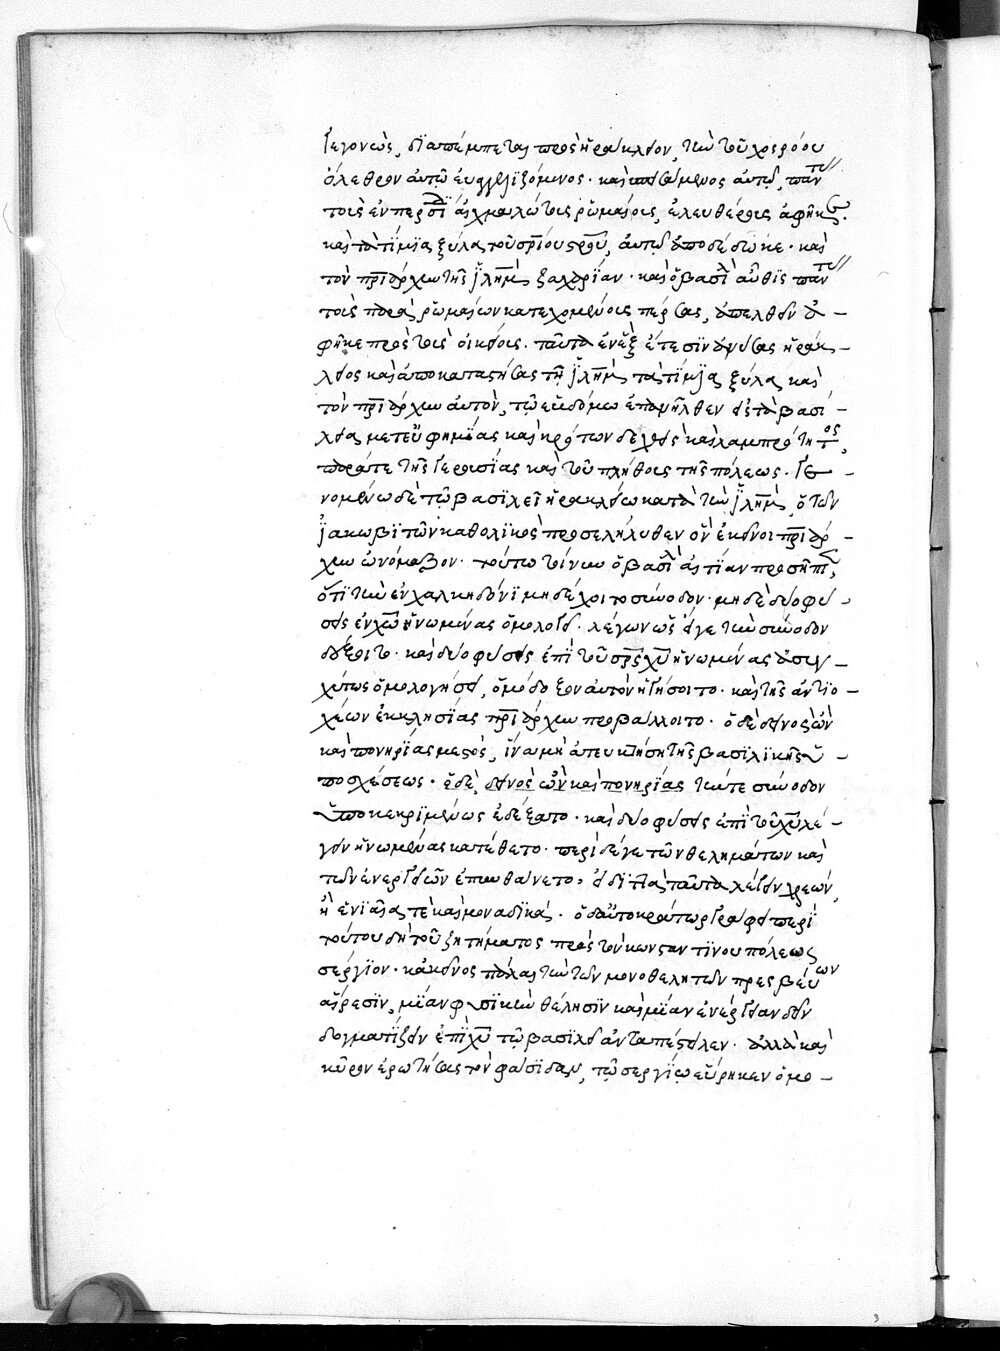 γεγονὼς, διαπέμπεται πρὸς ἡράκλειον, τὴν τοῦ χοσρόου
ὄλεθρον αὐτῷ εὐαγγελιζόμενος· καὶ σπεισάμενος αὐτῷ, πάντας
τοὺς ἐν περσίδι αἰχμαλώτους ῥωμαίους, ἐλευθέρους ἀφῆκε.
καὶ τὰ τίμια ξύλα τοῦ σταυροῦ, αὐτῷ ἀποδέδωκε· καὶ
τὸν πριάρχην τῆς ἱλημ ζαχαρίαν· καὶ ὁ βασιλεὺς αὖθις πάντας
τοὺς παρὰ ῥωμαίων κατεχομένους πέρσας, ἀπελθεῖν ἀ-
φῆκε πρὸς τοὺς οἰκείους. ταῦτα ἐν ἓξ ἔτεσιν ἀνύσας ἡράκ-
λειος καὶ ἀποκαταστήσας τῇ ἱλημ τὰ τίμια ξύλα καὶ
τὸν πριάρχην αὐτὸν, τῷ ἑβδόμῳ ἐπανῆλθεν εἰς τὰ βασί-
λεια, μετ' εὐφημίας καὶ κρότων δεχθεὶς καὶ λαμπρότητος,
παρά τε τῆς γερουσίας καὶ τοῦ πλήθους τῆς πόλεως. γε-
νομένῳ δὲ τῷ βασιλεῖ ἡρακλείῳ κατὰ τὴν ἱλημ, ὁ τῶν
ἰακωβιτῶν καθολικὸς προσελήλυθεν ὃν ἐκεῖνοι πριάρ-
χην ὠνόμαζον· τούτῳ τοίνυν ὁ βασιλεὺς αἰτίαν προσῆπτεν,
ὅτι τὴν ἐν χαλκηδόνι μὴ δέχοιτο σύνοδον· μὴ δὲ δύο φύ-
σεις ἐν χῷ ἡνωμένας ὁμολογεῖ. λέγων ὡς εἴγε τὴν σύνοδον
δέξοιτο· καὶ δύο φύσεις ἐπὶ τοῦ σρς χυ ἡνωμένας ἀσυγ-
χύτως ὁμολογήσει, ὁμόδοξον αὐτὸν ἡγήσοιτο· καὶ τῆς ἀντιο-
χέων ἐκκλησίας πριάρχην προβάλλοιτο· ὁ δὲ δεινὸς ὢν
καὶ πονηρίας μεστὸς, ἵνα μὴ ἀπευκτήσῃ τῆς βασιλικῆς ὑ-
ποσχέσεως· ὁ δὲ, δεινὸς ὢν καὶ πονηρίας τήν τε σύνοδον
ὑποκεκριμένως ἐδέξατο· καὶ δύο φύσεις ἐπὶ τοῦ χυ λέ-
γειν ἡνωμένας κατέθετο· περὶ δέ γε τῶν θελημάτων καὶ
τῶν ἐνεργειῶν ἐπυνθάνετο, εἰ διττὰς ταῦτα λέγειν χρεὼν,
ἢ ἑνιαίας τε καὶ μοναδικάς. ὁ δ' αὐτοκράτωρ γράφει περὶ
τούτου δὴ τοῦ ζητήματος πρὸς τὸν κωνσταντίνου πόλεως
σέργιον· κἀκεῖνος πάλαι τὴν τῶν μονοθελητῶν πρεσβεύων
αἵρεσιν, μίαν φυσικὴν θέλησιν καὶ μίαν ἐνέργειαν δεῖν
δογματίζειν ἐπὶ χυ τῷ βασιλεῖ ἀνταπέστειλεν. ἀλλὰ καὶ
κῦρον ἐρωτήσας τὸν φάσιδος, τῷ σεργίῳ εὕρηκεν ὁμο-